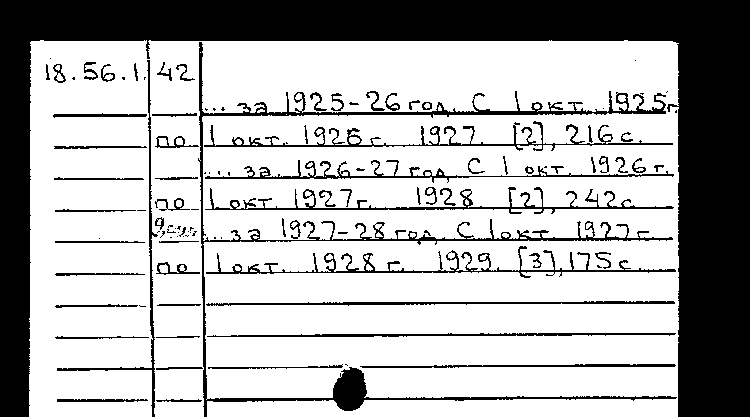 18.56.1. 42
... за 1925-26 год. С 1 окт. 1925г.
по 1 окт. 1926 г. 1927. [2], 216 с.
... за 1926-27 год. С 1 окт. 1926 г.
по 1 окт. 1927г. 1928. [2], 242с.
... за 1927-28 год. С 1 окт. 1927 г.
по 1 окт. 1928 г. 1929. [3], 175 с.